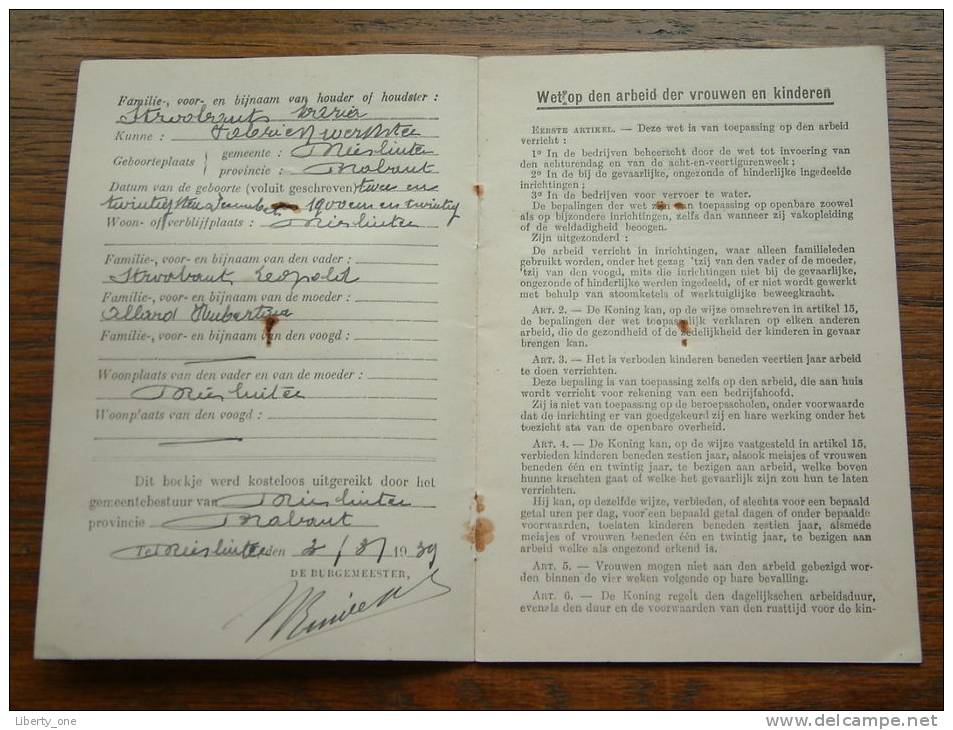 Familie-, voor- en bijnaam van houder of houdster :
Stroobants Maria
Kunne : Fabriekwerkster
Geboorteplaats gemeente : Drieslinter
provincie : Brabant
Datum van de geboorte (voluit geschreven) twee en
twintigsten 1900 een en twintig
Woon- of verblijfplaats : Drieslinter
Familie-, voor- en bijnaam van den vader :
Stroobants Leopold
Familie-, voor- en bijnaam van de moeder :
Allard Hubertina
Familie-, voor- en bijnaam van den voogd :
Woonplaats van den vader en van de moeder :
Drieslinter
Woonplaats van den voogd :
Dit boekje werd kosteloos uitgereikt door het
gemeentebestuur van Drieslinter
provincie Brabant
Te Drieslinter den 2/3/1939
DE BURGEMEESTER,
Wet op den arbeid der vrouwen en kinderen
EERSTE ARTIKEL. — Deze wet is van toepassing op den arbeid
verricht :
1º In de bedrijven beheerscht door de wet tot invoering van
den achturendag en van de acht-en-veertigurenweek ;
2º In de bij de gevaarlijke, ongezonde of hinderlijke ingedeelde
inrichtingen ;
3º In de bedrijven voor vervoer te water.
De bepalingen der wet zijn van toepassing op openbare zoowel
als op bijzondere inrichtingen, zelfs dan wanneer zij vakopleiding
of de weldadigheid beoogen.
Zijn uitgezonderd :
De arbeid verricht in inrichtingen, waar alleen familieleden
gebruikt worden, onder het gezag 'tzij van den vader of de moeder,
'tzij van den voogd, mits die inrichtingen niet bij de gevaarlijke,
ongezonde of hinderlijke werden ingedeeld, of er niet wordt gewerkt
met behulp van stoomketels of werktuiglijke beweegkracht.
ART. 2. — De Koning kan, op de wijze omschreven in artikel 15,
de bepalingen der wet toepasselijk verklaren op elken anderen
arbeid, die de gezondheid of de zedelijkheid der kinderen in gevaar
brengen kan.
ART. 3. — Het is verboden kinderen beneden veertien jaar arbeid
te doen verrichten.
Deze bepaling is van toepassing zelfs op den arbeid, die aan huis
wordt verricht voor rekening van een bedrijfshoofd.
Zij is niet van toepassing op de beroepsscholen, onder voorwaarde
dat de inrichting er van goedgekeurd zij en hare werking onder het
toezicht sta van de openbare overheid.
ART. 4. — De Koning kan, op de wijze vastgesteld in artikel 15,
verbieden kinderen beneden zestien jaar, alsook meisjes of vrouwen
beneden één en twintig jaar, te bezigen aan arbeid, welke boven
hunne krachten gaat of welke het gevaarlijk zijn zou hun te laten
verrichten.
Hij kan, op dezelfde wijze, verbieden, of slechts voor een bepaald
getal uren per dag, voor een bepaald getal dagen of onder bepaalde
voorwaarden, toelaten kinderen beneden zestien jaar, alsmede
meisjes of vrouwen beneden één en twintig jaar, te bezigen aan
arbeid welke als ongezond erkend is.
ART. 5. — Vrouwen mogen niet aan den arbeid gebezigd wor-
den binnen de vier weken volgende op hare bevalling.
ART. 6. — De Koning regelt den dagelijkschen arbeidsduur,
evenals den duur en de voorwaarden van den rusttijd voor de kin-
Liberty_one
www.delcampe.net